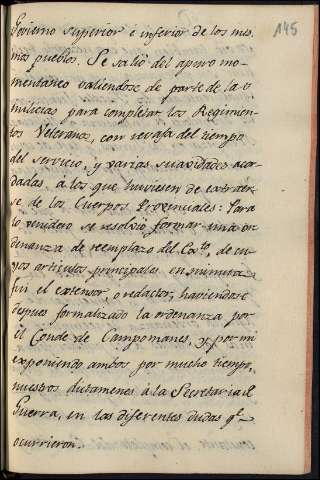 145
Govierno superior é inferior de los mis
mos pueblos. Se salió del apuro mo-
mentaneo valiéndose de parte de las
milicias para completar los Regimien-
tos Veteranos, con revaja del tiempo
del servicio, y varias suavidades acor
dadas à los que huviesen de extraer-
se de los Cuerpos Provinciales: Para
lo venidero se resolvió formar una or
denanza de reemplazo del Exto, de cu-
yos articulos principales en minuta
fui el extensor, o redactor, haviendose
despues formalizado la ordenanza por
el Conde de Campomanes, y por mi
exponiendo ambos por mucho tiempo,
nuestros dictamenes à la Secretaria de
Guerra, en las diferentes dudas qe
ocurrieron.